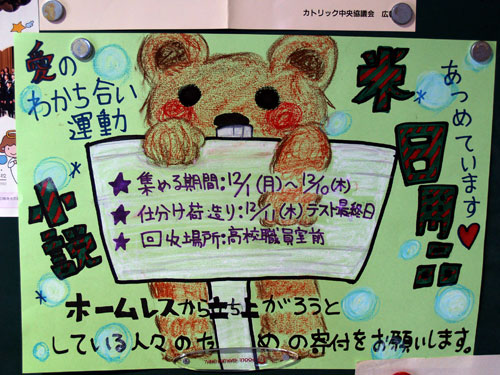 カトリック中央協議会 広
愛の
わかち合い
運動
あつめています♥
米
日用品
小説
★ 集める期間:12/1(月)〜12/10(水)
★ 仕分け荷造り:12/11(木)テスト最終日
★ 回収場所:高校職員室前
ホームレスから立ち上がろうと
している人々のための寄付をお願いします。